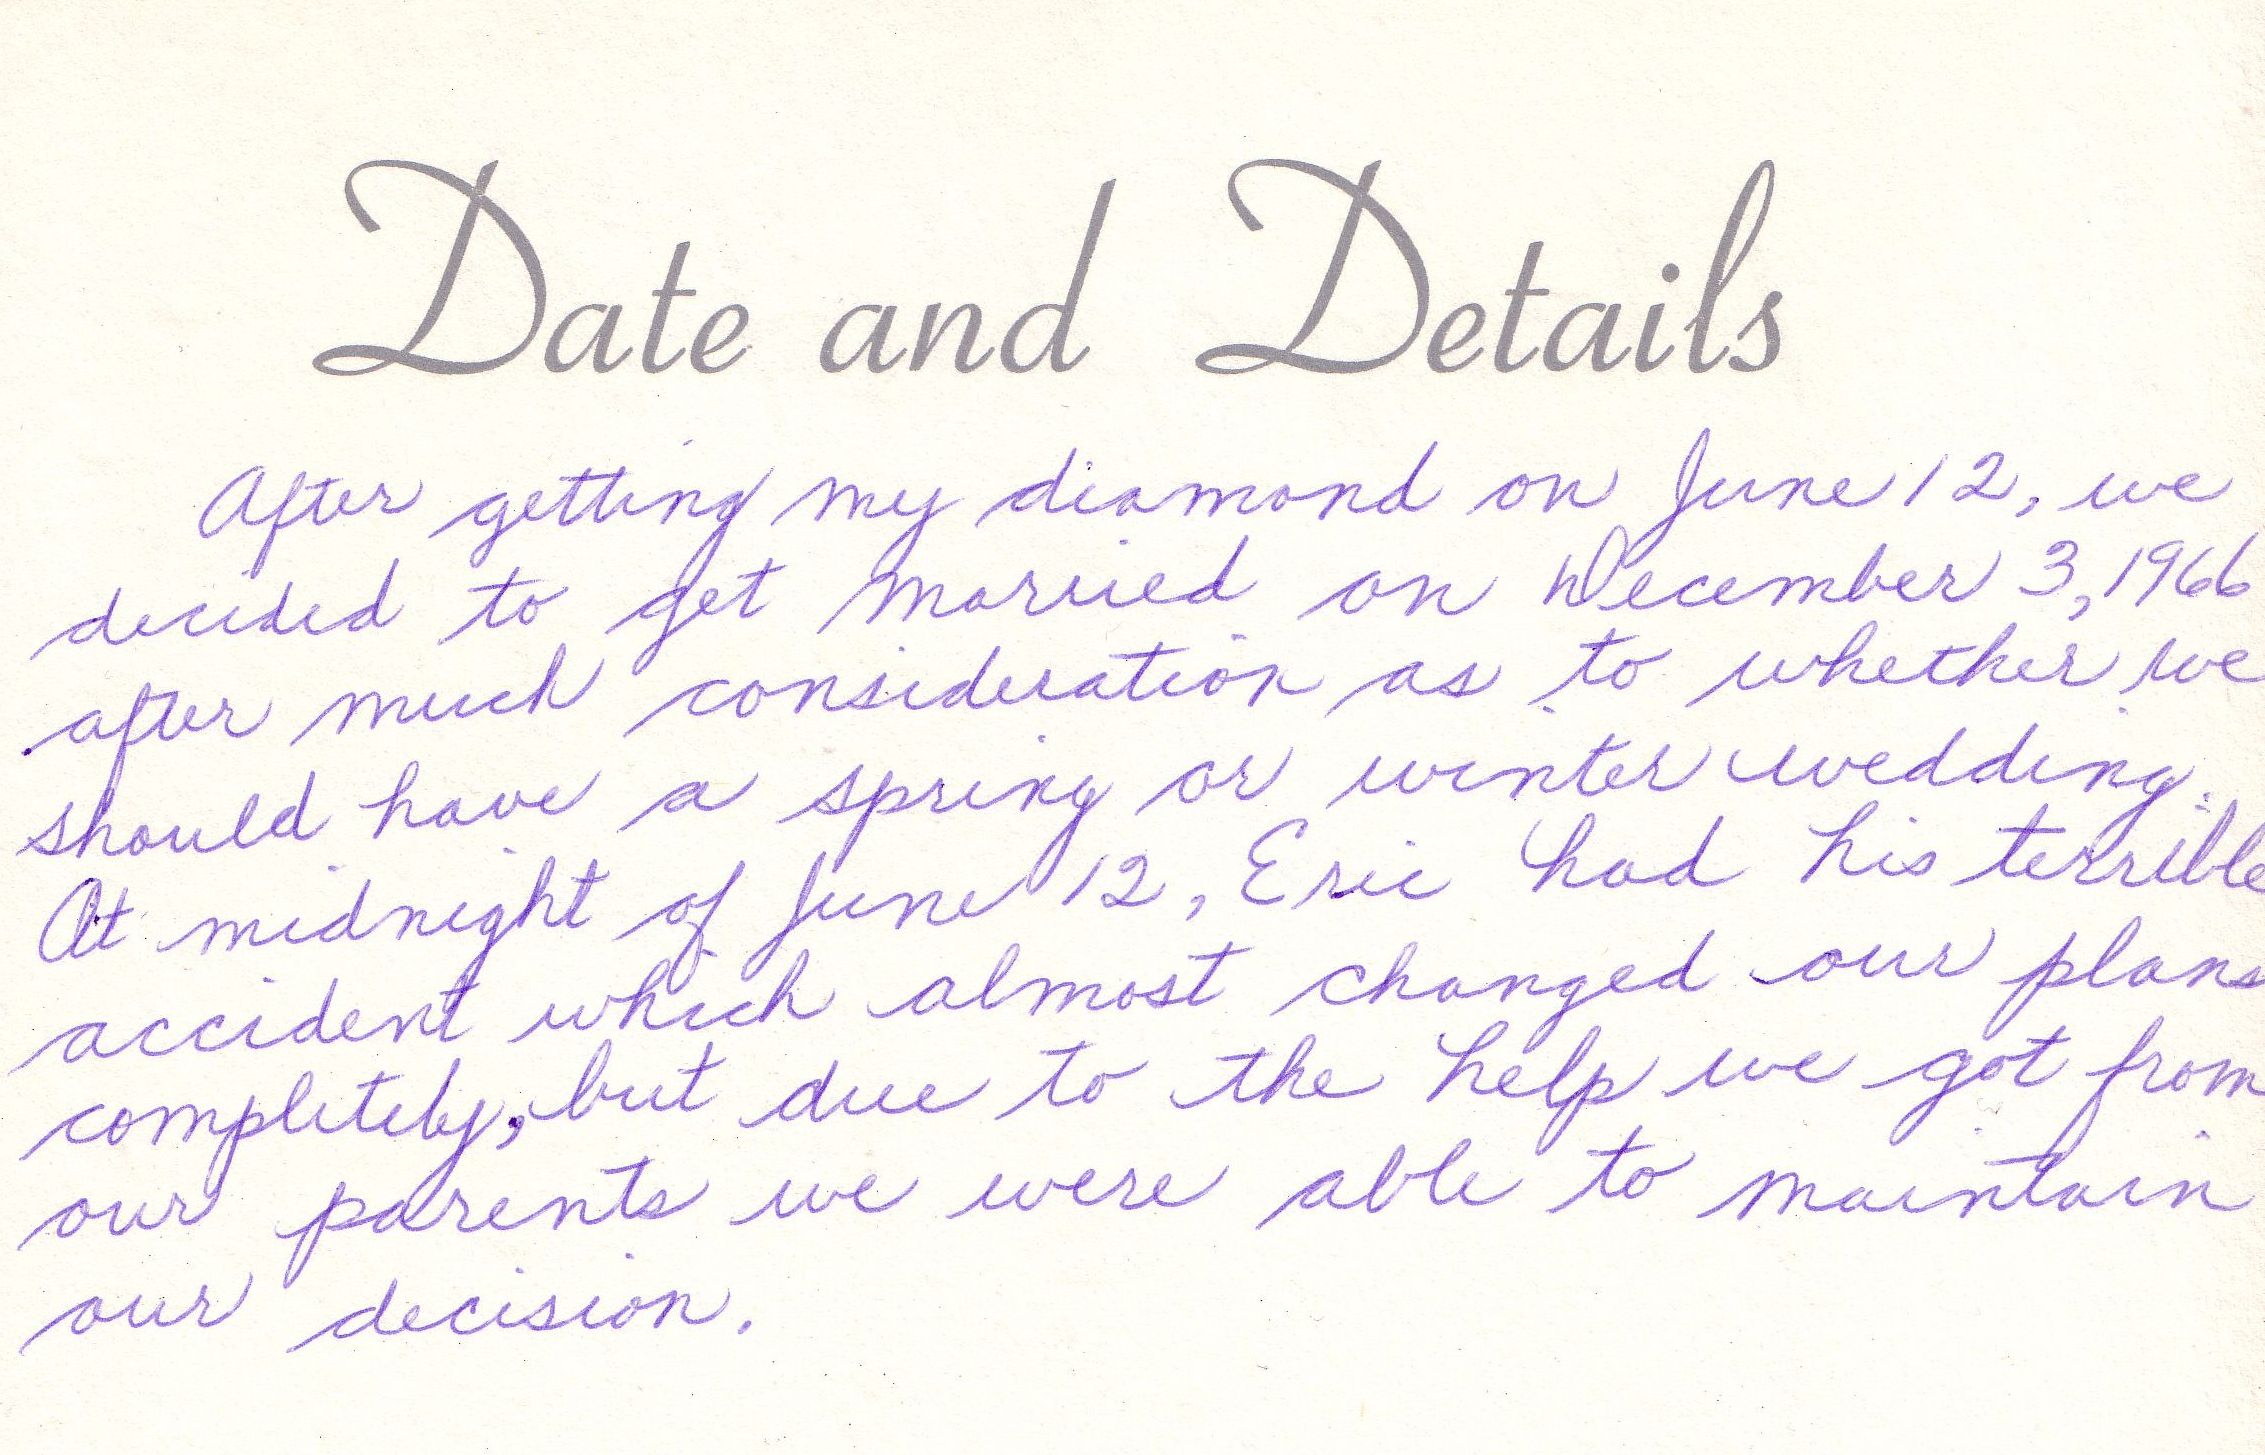 Date and Details
After getting my diamond on June 12, we
decided to get married on December 3, 1966
after much consideration as to whether we
should have a spring or winter wedding.
At midnight of June 12, Eric had his terrible
accident which almost changed our plans
completely, but due to the help we got from
our parents we were able to maintain
our decision.